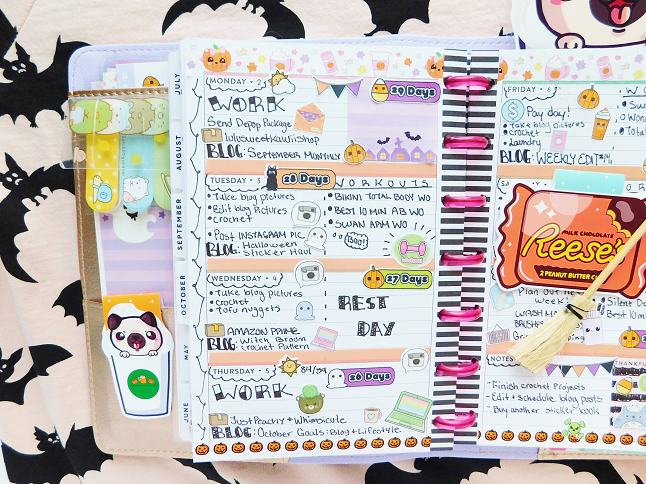 JULY
AUGUST
SEPTEMBER
OCTOBER
MAY
JUNE
MONDAY • 2
29 Days
WORK
Send Depop Package
lulusweetkawaiishop
BLOG: September Monthly
TUESDAY • 3
28 Days
WORKOUTS
• Take blog pictures
• Edit blog Pictures
• crochet
• Post INSTAGRAM PIC
BLOG: Halloween
Sticker Haul
• BIKINI TOTAL BODY WO
• BEST 10 MIN AB WO
• SWAN ARM WO
WEDNESDAY • 4
27 Days
• Take blog pictures
• crochet
• Tofu nuggets
REST
DAY
AMAZON PRIME
BLOG: Witch Broom
crochet Pattern
THURSDAY • 5
84/59
26 Days
WORK
JustPeachy + Whimsicute
BLOG: October Goals: Blog + Lifestyle
FRIDAY • 6
Pay day!
• Take blog pictures
• crochet
• laundry
BLOG: WEEKLY EDIT
MILK CHOCOLATE
Reese's
2 PEANUT BUTTER
Plan out
week
WASH
BRUSHES
Silent
Best 10
NOTES
THANKFUL
- Finish crochet Projects
- Edit + schedule blog posts
- Buy another sticker book